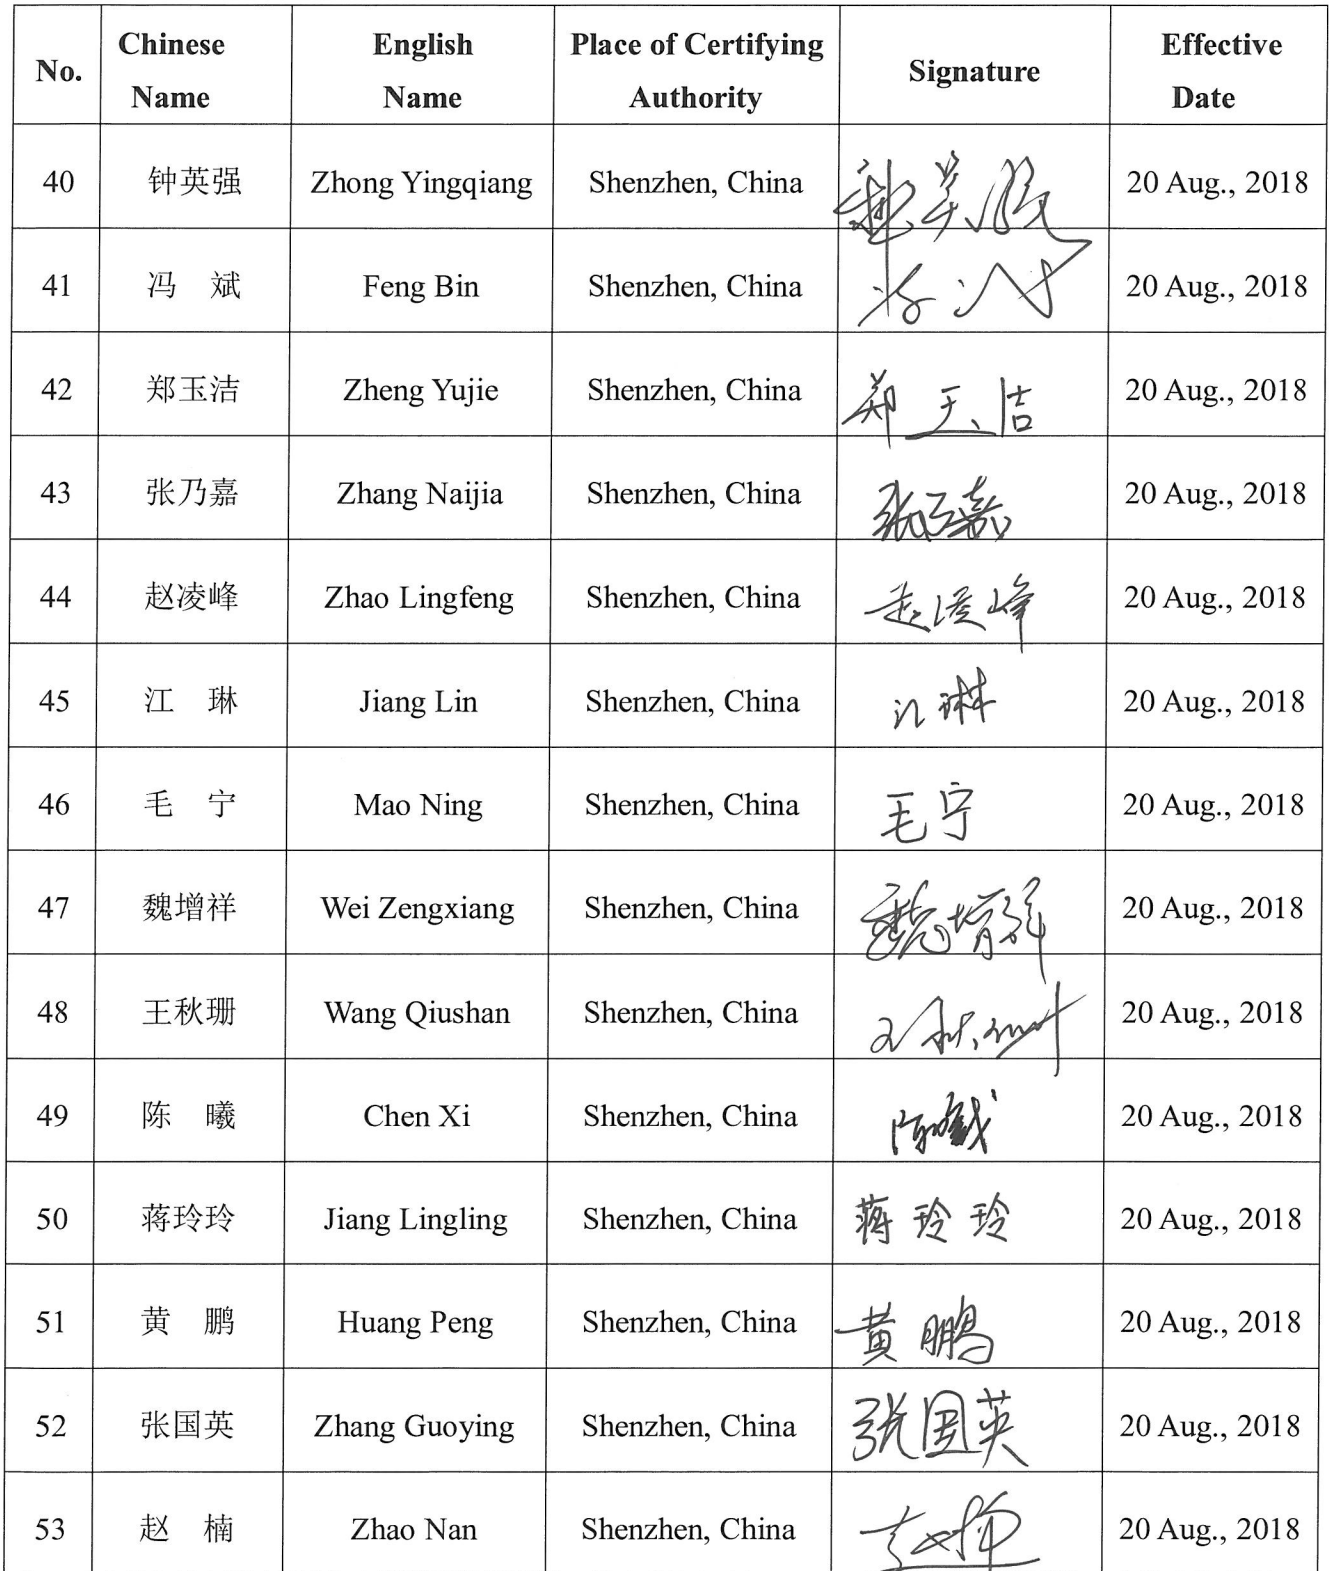 No. Chinese Name English Name Place of Certifying Authority Signature Effective Date
40 钟英强 Zhong Yingqiang Shenzhen, China 钟英强 20 Aug., 2018
41 冯 斌 Feng Bin Shenzhen, China 20 Aug., 2018
42 郑玉洁 Zheng Yujie Shenzhen, China 郑玉洁 20 Aug., 2018
43 张乃嘉 Zhang Naijia Shenzhen, China 张乃嘉 20 Aug., 2018
44 赵凌峰 Zhao Lingfeng Shenzhen, China 赵凌峰 20 Aug., 2018
45 江 琳 Jiang Lin Shenzhen, China 江琳 20 Aug., 2018
46 毛 宁 Mao Ning Shenzhen, China 毛宁 20 Aug., 2018
47 魏增祥 Wei Zengxiang Shenzhen, China 魏增祥 20 Aug., 2018
48 王秋珊 Wang Qiushan Shenzhen, China 王秋珊 20 Aug., 2018
49 陈 曦 Chen Xi Shenzhen, China 陈曦 20 Aug., 2018
50 蒋玲玲 Jiang Lingling Shenzhen, China 蒋玲玲 20 Aug., 2018
51 黄 鹏 Huang Peng Shenzhen, China 黄鹏 20 Aug., 2018
52 张国英 Zhang Guoying Shenzhen, China 张国英 20 Aug., 2018
53 赵 楠 Zhao Nan Shenzhen, China 赵楠 20 Aug., 2018